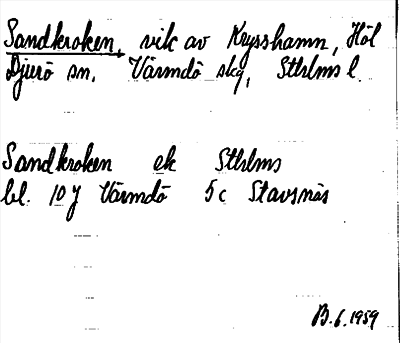 Sandkroken, vik av Krysshamn, Höl
Djurö sn. Värmdö skg, Sthlms l.
Sandkroken ek Sthlms
bl. 10 J Värmdö 5 c Stavsnäs
B.6.1959